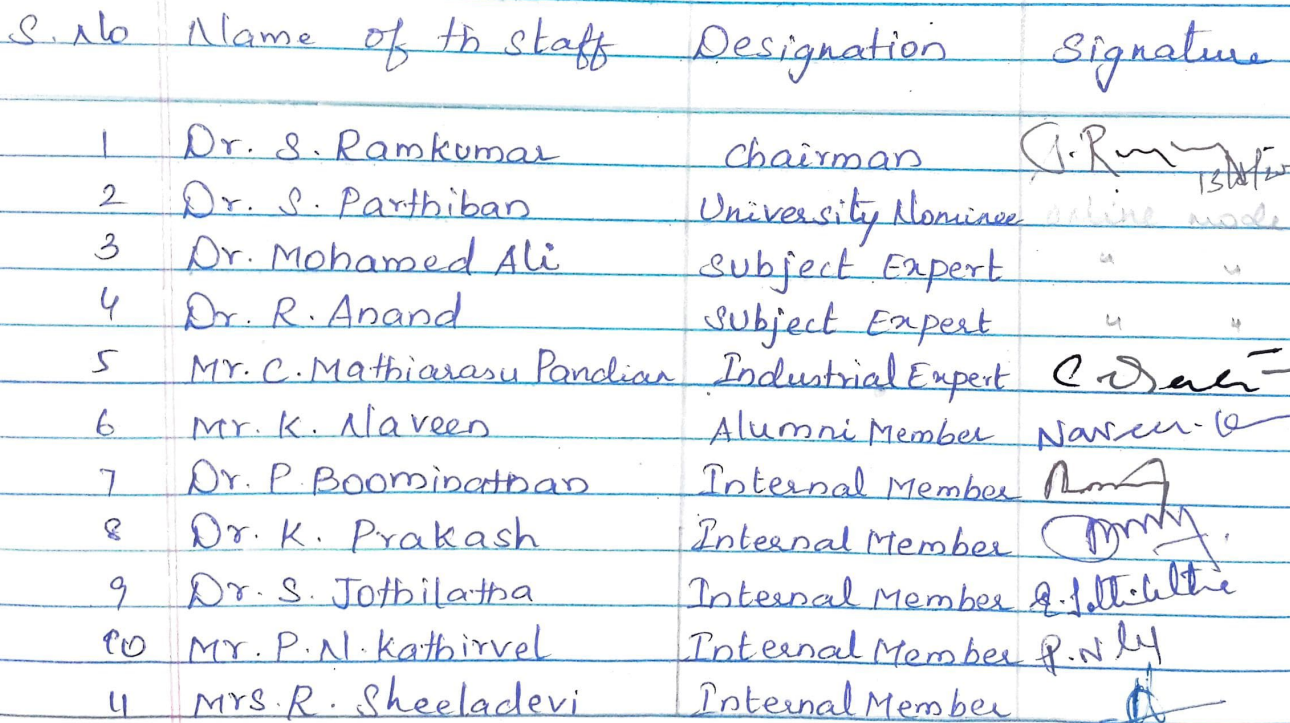 S.No Name of th staff Designation Signature
1 Dr. S. Ramkumar Chairman
2 Dr. S. Parthiban University Nominee online mode
3 Dr. Mohamed Ali Subject Expert " "
4 Dr. R. Anand Subject Expert " "
5 Mr. C. Mathiarasu Pandian Industrial Expert
6 Mr. K. Naveen Alumni Member Naveen.K
7 Dr. P. Boominathan Internal Member
8 Dr. K. Prakash Internal Member
9 Dr. S. Jothilatha Internal Member
10 Mr. P.N. Kathirvel Internal Member
11 Mrs. R. Sheeladevi Internal Member